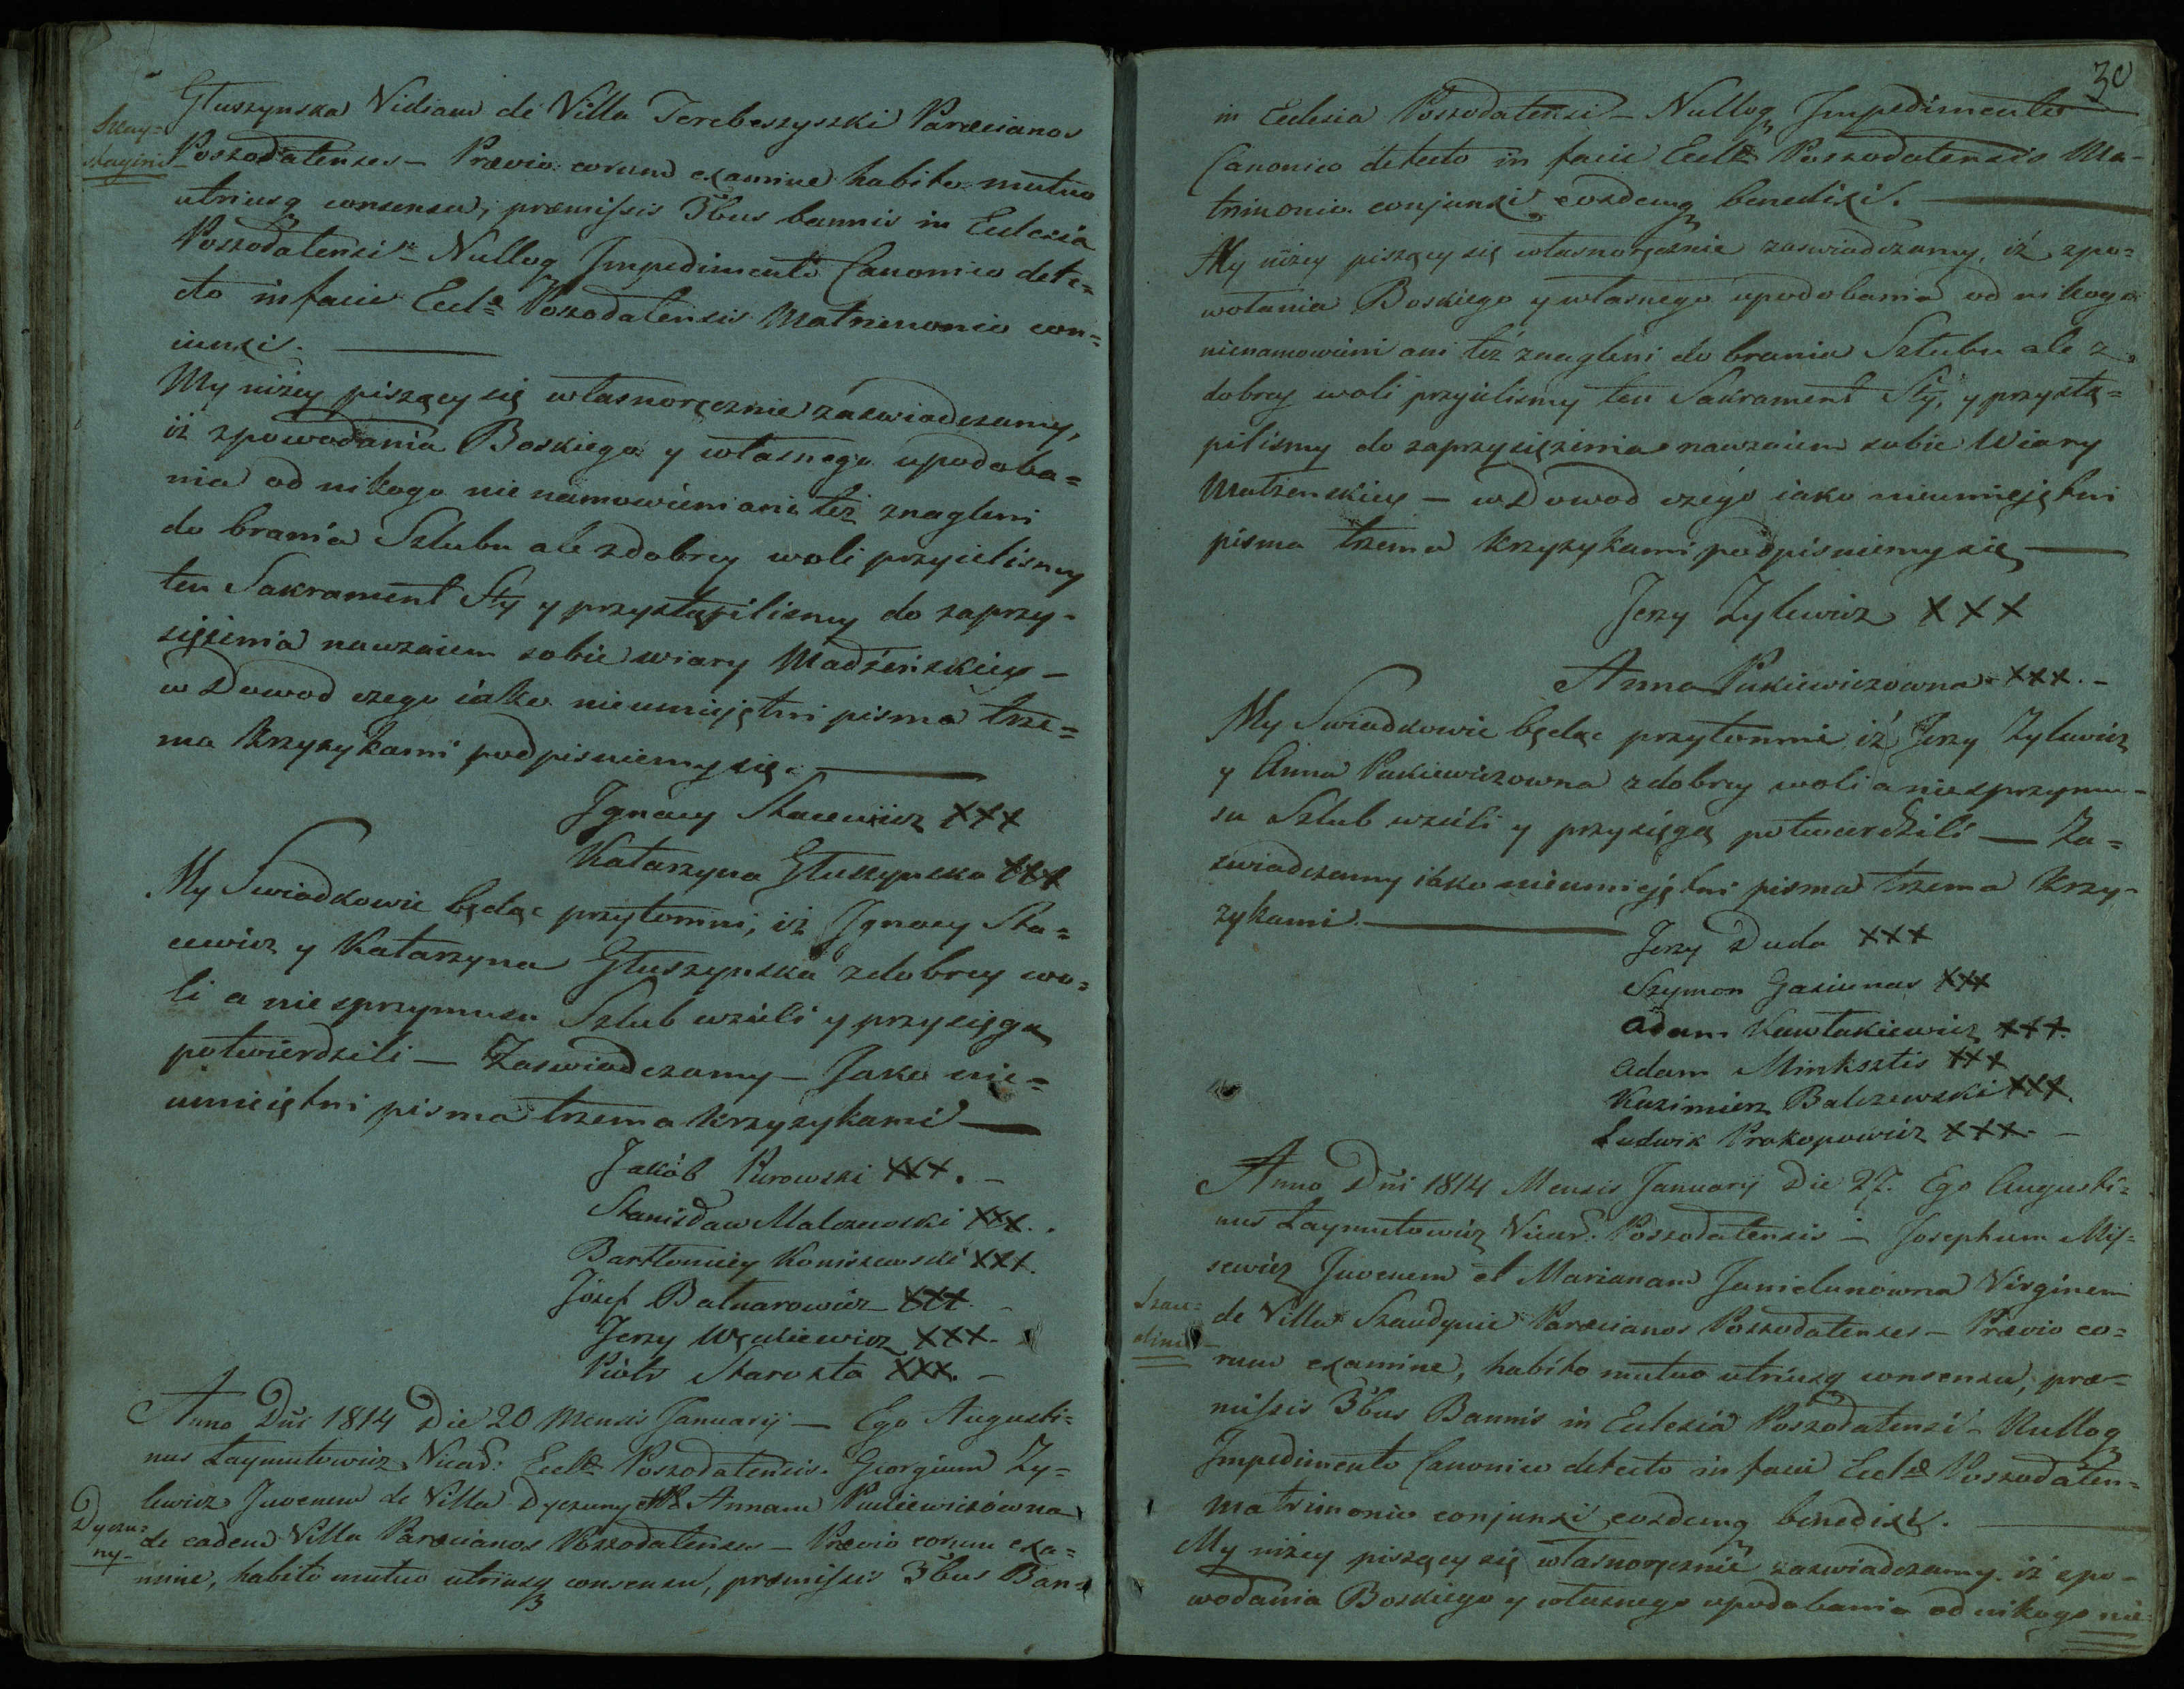 Głuszynska Viduam de Villa Terebeszyszki Parœcianos
Szay=
stagini
Poszodatenses – Prævio eorum examine habito mutuo
utriusq consensu, præmissis 3bus bannis in Eclesia
Poszodatensi – Nulloq Impedimento Canonico dete=
cto in facie Ecl Poszodatensis Matrimonio con=
iunxi.
My niżey piszący się własnoręcznie zaswiadczamy,
iż zpowodania Boskiego y własnego upodoba=
nia od nikogo nie namowieni ani też znagleni
do brania Szlubu ale zdobrey woli przyielismy
ten Sakrament Sty y przystąpilismy do zaprzy=
siężenia nawzaiem sobie wiary Madżeńskiey –
w Dowod czego iako nieumiejętni pisma trze=
ma krzyzykami podpisuiemy się.
Ignacy Stacewicz XXX
Katarzyna Głuszynska XXX
My Swiadkowie będąc przytomni, iż Ignacy Sta=
cewicz y Katarzyna Głuszynska zdobrey wo=
li a nie zprzymusu Szlub wzieli y przysięgą
potwierdzili – Zaswiadczamy – Jako nie=
umieiętni pisma trzema krzyzykami
Jakób Purowski XXX. –
Stanisław Malczewski XXX.
Bartłomiey Koniszewski XXX.
Józef Batnarowicz XXX. –
Jerzy Węckiewicz XXX.
Piotr Starosta XXX. –
Anno Dni 1814 Die 20 Mensis Januarij – Ego Augusti=
nus Łaymutowicz Vicar: Ecl Poszodatensis. Georgium Zy=
lewicz Juvenem de Villa Dyczuny et Annam Pukiewiczówna
Dyczu=
ny –
de eadem Villa Parœcianos Poszodatenses – Prævio eorum exa=
mine, habito mutuo utriusq consensu, præmissis 3bus Ban=
30
in Eclesia Poszodatensi – Nulloq Impedimento
Canonico detecto in facie Ecl Poszodatensis Ma=
trimonio conjunxi eosdemq benedixi.
My niżey piszący się własnoręcznie zaswiadczamy, iż zpo=
wołania Boskiego y własnego upodobania od nikogo
nienamowieni ani też znagleni do brania Szlubu ale z
dobrey woli przyielismy ten Sakrament Sty, y przystą=
pilismy do zaprzysiężenia nawzaiem sobie Wiary
Małżenskiey – w Dowod czego iako nieumiejętni
pisma trzema krzyzykami podpisuiemy się
Jerzy Zylewicz XXX
Anna Pukiewiczowna XXX. –
My Swiadkowie będąc przytomni iż Jerzy Zylewicz
y Anna Pukiewiczowna zdobrey woli a nie zprzymu=
su Szlub wzieli y przysięgą potwierdzili – Za=
swiadczamy iako nieumiejętni pisma trzema krzy=
zykami.
Jerzy Duda XXX
Szymon Gasiunas XXX
Adam Kawłakiewicz XXX.
Adam Minksztis XXX
Kazimierz Balczewski XXX.
Ludwik Prokopowicz XXX. –
Anno Dni 1814 Mensis Januarij Die 27. Ego Augusti=
nus Łaymutowicz Vicar. Poszodatensis – Josephum Mis=
sewicz Juvenem et Marianam Janielunowna Virginem
Szau=
de Villa Szaudynie Parœcianos Poszodatenses – Prævio eo=
rum examine, habito mutuo utriusq consensu, præ=
missis 3bus Bannis in Eclesia Poszodatensi – Nulloq
Impedimento Canonico detecto in facie Ecl Poszodaten=
Matrimonio conjunxi eosdemq benedixi.
My niżey piszący się własnoręcznie zaswiadczamy iż zpo=
wodania Boskiego y własnego upodobania od nikogo nie=